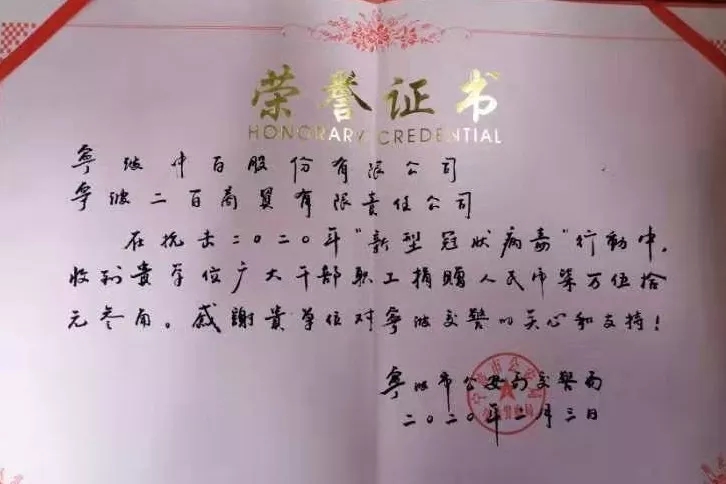 荣誉证书
HONORARY CREDENTIAL
寧波中百股份有限公司
寧波二百商貿有限責任公司
在抗击二0二0年“新型冠状病毒”行動中,
收到貴单位广大干部职工捐贈人民币柒万伍拾
元叁角。感謝貴单位对寧波交警的关心和支持!
寧波市公安局交警局
二0二0年二月三日